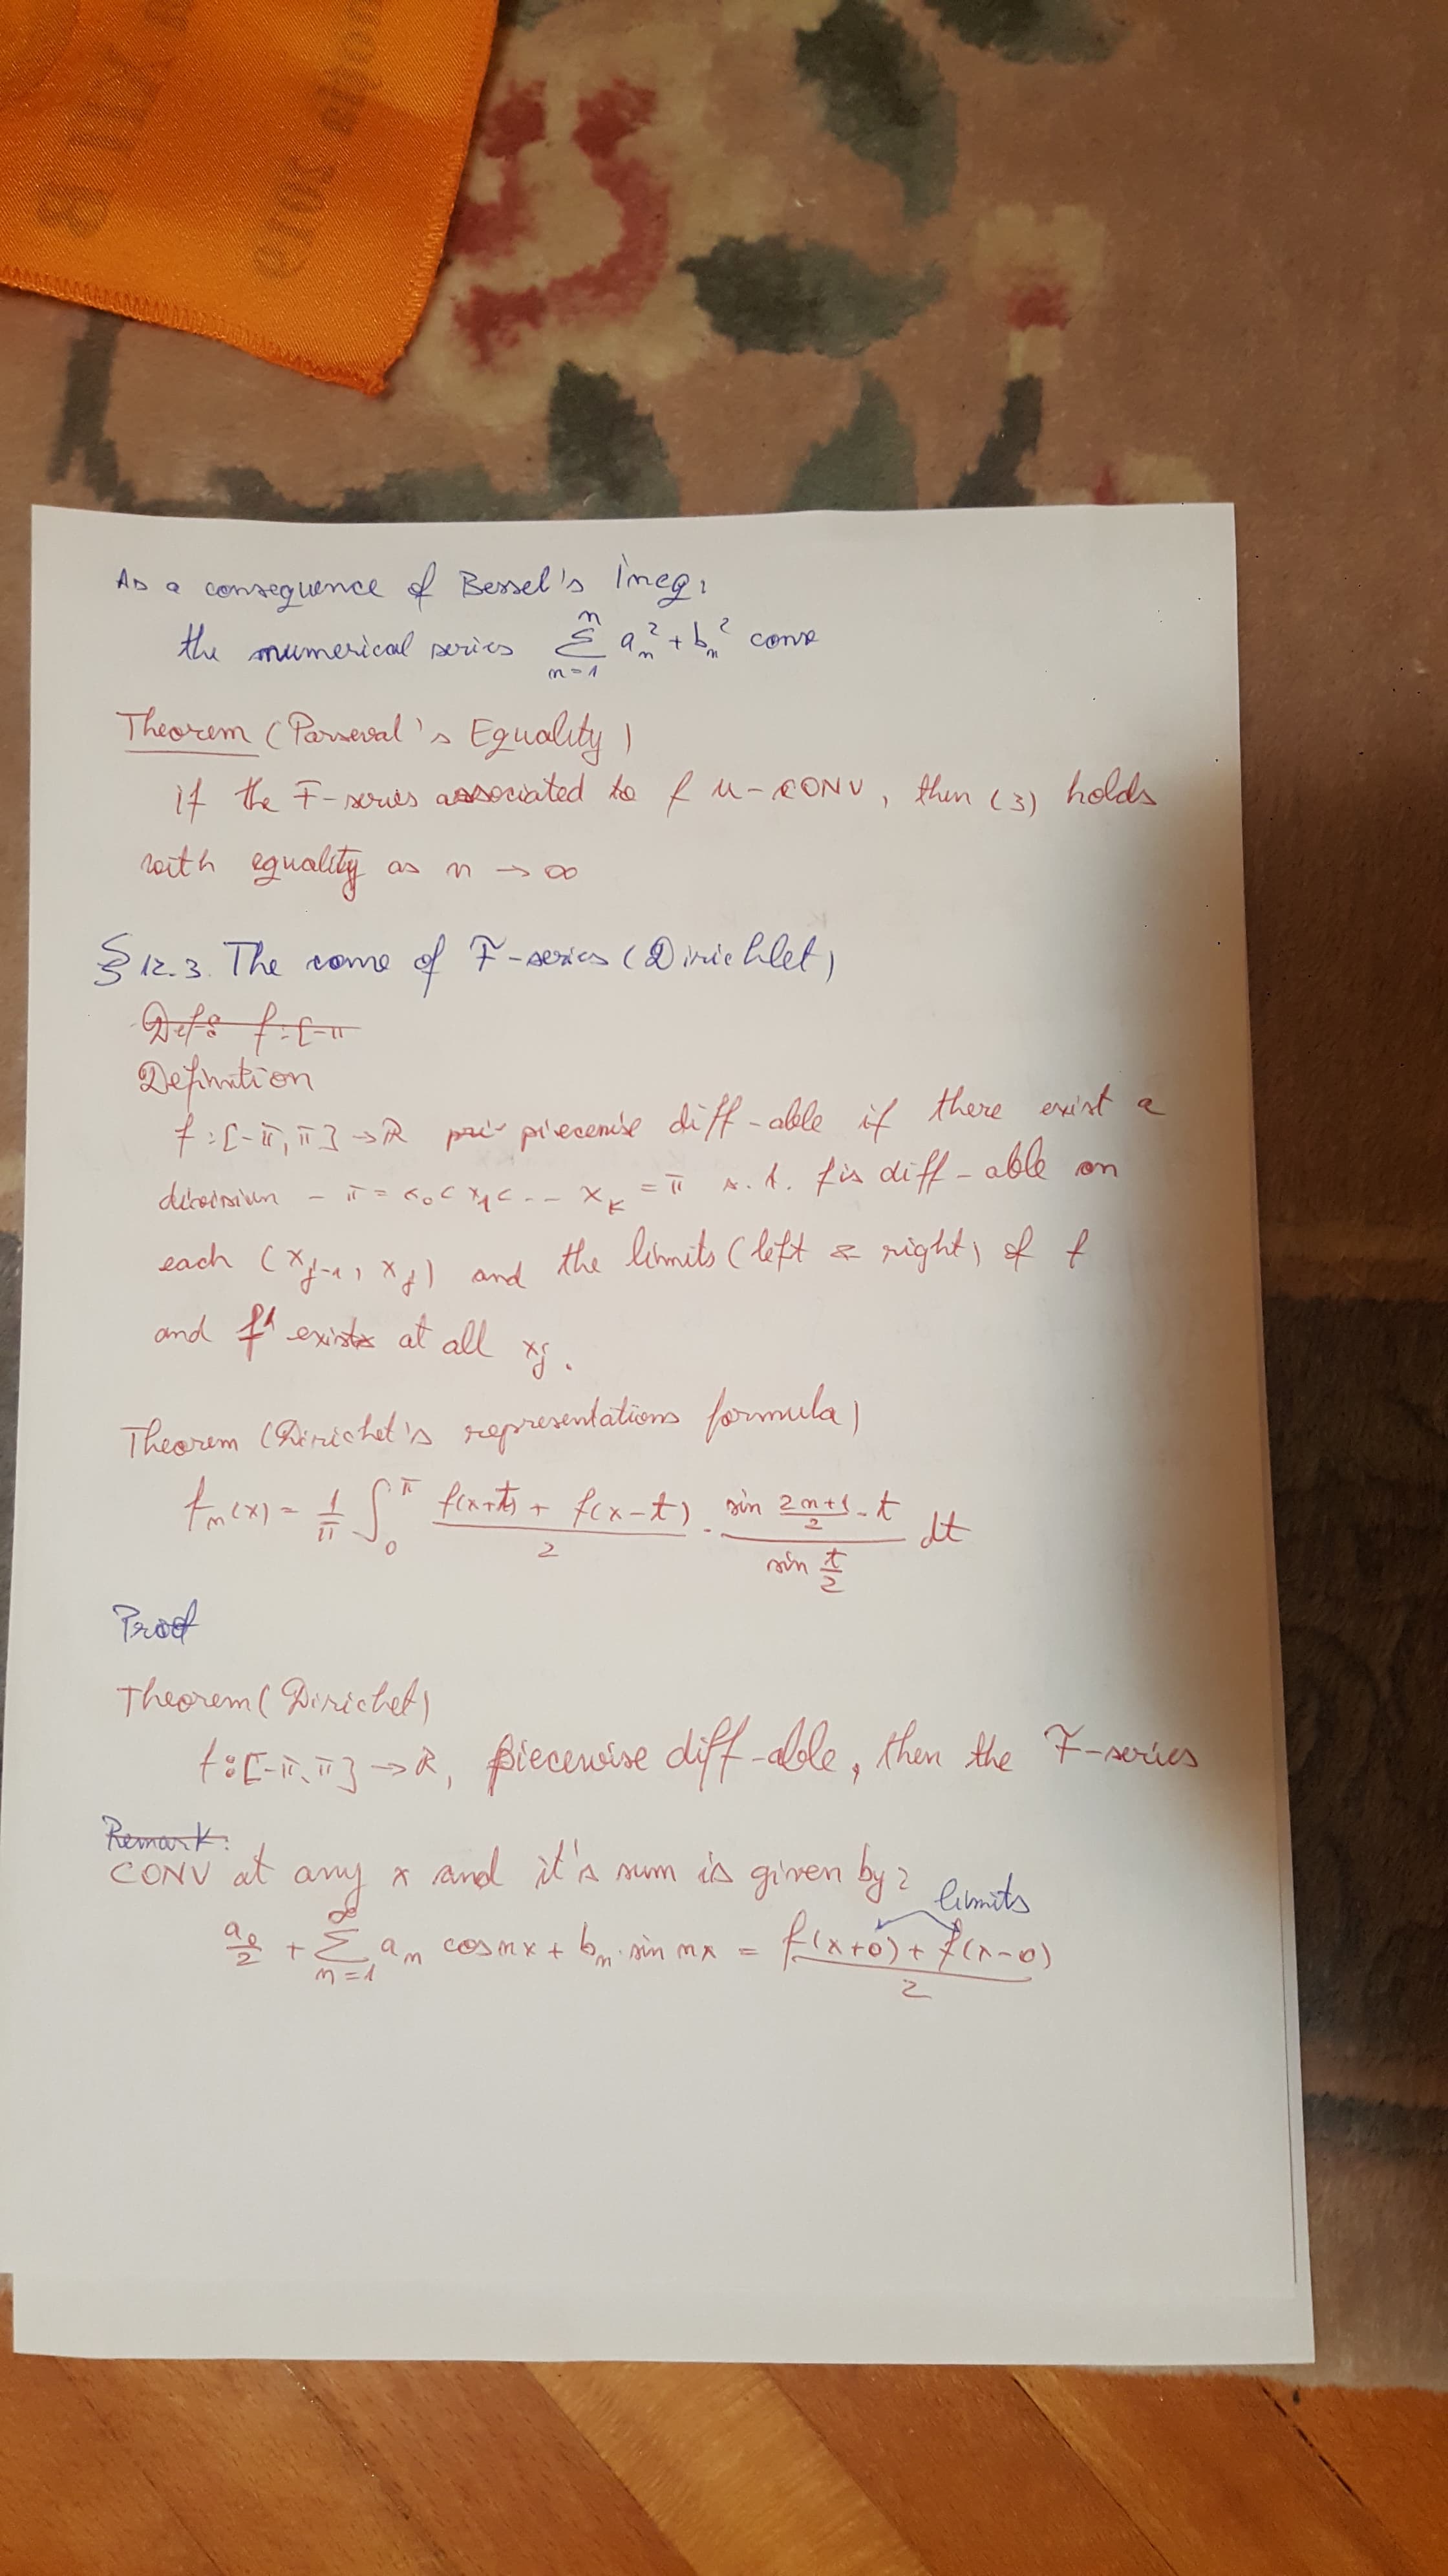 В XIII
2019
As a consequence of Bessel's Ineq:
the numerical series \sum_{n=1}^{n} a_n^2 + b_n^2 conv
Theorem (Parseval's Equality)
if the F-series associated to f u-CONV, then (3) holds
with equality as n → ∞
§ 12.3. The conv of F-series (Dirichlet)
Def: f:[-π
Definition
f:[-π,π] → R piecewise diff-able if there exist a
division -π = x_0 < x_1 < ... x_k = π s.t. f is diff-able on
each (x_{j-1}, x_j) and the limits (left & right) of f
and f' exists at all x_j.
Theorem (Dirichet's representations formula)
f_n(x) = \frac{1}{π} \int_0^π \frac{f(x+t) + f(x-t)}{2} · \frac{sin \frac{2n+1}{2} · t}{sin \frac{t}{2}} dt
Proof
Theorem (Dirichet)
f:[-π,π] → R, piecewise diff-able, then the F-series
Remark:
CONV at any x and it's sum is given by:
limits
\frac{a_0}{2} + \sum_{n=1}^{∞} a_n cos nx + b_n · sin nx = \frac{f(x+0) + f(x-0)}{2}